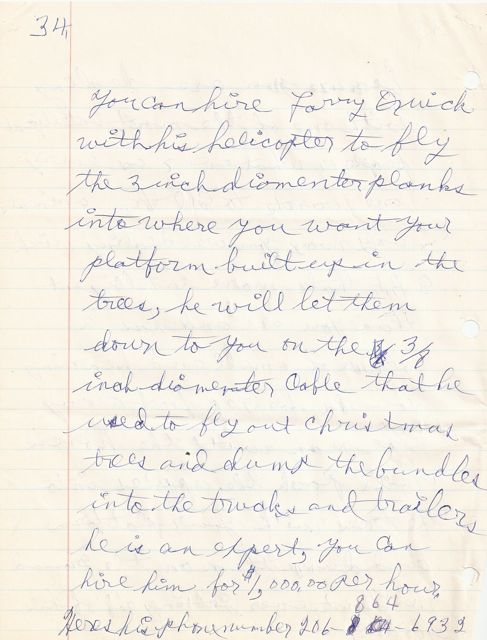 34
You can hire Larry Quick
with his helicopter to fly
the 3 inch diomenter planks
into where you want your
platform built up in the
trees, he will let them
down to you on the 3/8
inch diomenter Cable that he
used to fly out christmas
trees and dump the bundles
into the trucks and trailers
he is an expert, you can
hire him for $1,000.00 per hour.
864
Heres his phone number 206- -6932